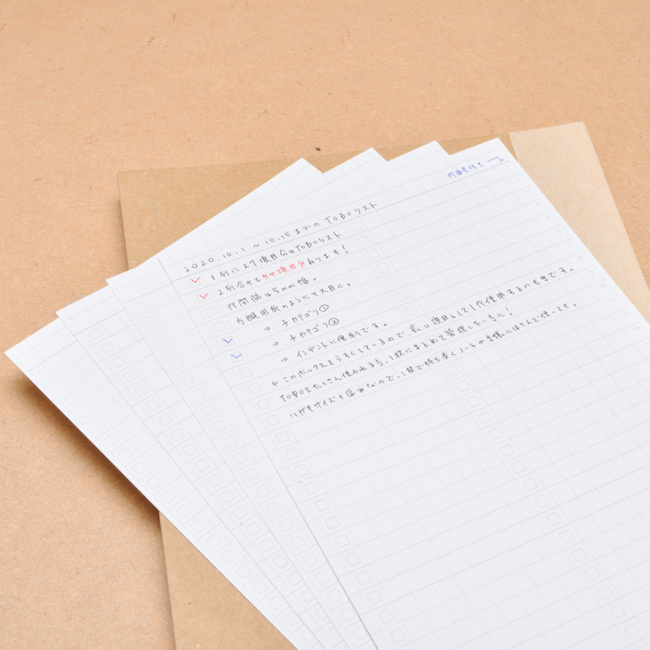 行番号付き
2020.10.1 ~ 10.15までの TODOリスト
1列に27項目分のTODOリスト
2列合せて54項目分あります!
行間隔は5mm幅。
方眼用紙のようにマス目に。
→ 子カテゴリ①
→ 子カテゴリ②
→ インデントに便利です。
← このボックスをうすくしているので、私に項目として1行使用するのも手です。
TODOをたくさん使われる方、1枚にまとめて管理したい方に!
ハガキサイズ+ なので、1枚で持ち歩くノートや手帳にはさんで使ってます。